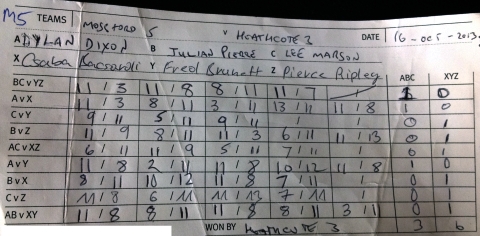 M5 TEAMS MOSSFORD 5 V HEATHCOTE 3 DATE 16-OCT-2013
A DYLAN DIXON B JULIAN PIERRE C LEE MARSON
X Csaba Y Fred Z Pierce Ripley
ABC XYZ
BCvYZ 11 / 3 11 / 8 8 / 11 11 / 7 / 1 0
AvX 11 / 3 8 / 11 3 / 11 13 / 11 11 / 8 1 0
CvY 9 / 11 5 / 11 9 / 11 / / 0 1
BvZ 11 / 9 8 / 11 11 / 3 6 / 11 11 / 13 0 1
ACvXZ 6 / 11 11 / 9 5 / 11 7 / 11 / 0 1
AvY 11 / 8 2 / 11 11 / 8 10 / 12 11 / 8 1 0
BvX 8 / 11 10 / 12 11 / 8 7 / 11 / 0 1
CvZ 11 / 8 6 / 11 11 / 13 7 / 11 / 0 1
ABvXY 11 / 8 8 / 11 11 / 8 8 / 11 3 / 11 0 1
WON BY HEATHCOTE 3 3 6